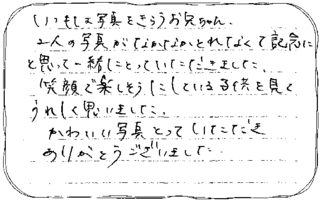 いつもは写真をきらうお兄ちゃん。
2人の写真がなかなかとれなくて記念に
と思って一緒にとっていただきました。
笑顔で楽しそうにしている子供を見て
うれしく思いました。
かわいい写真とっていただき
ありがとうございました。